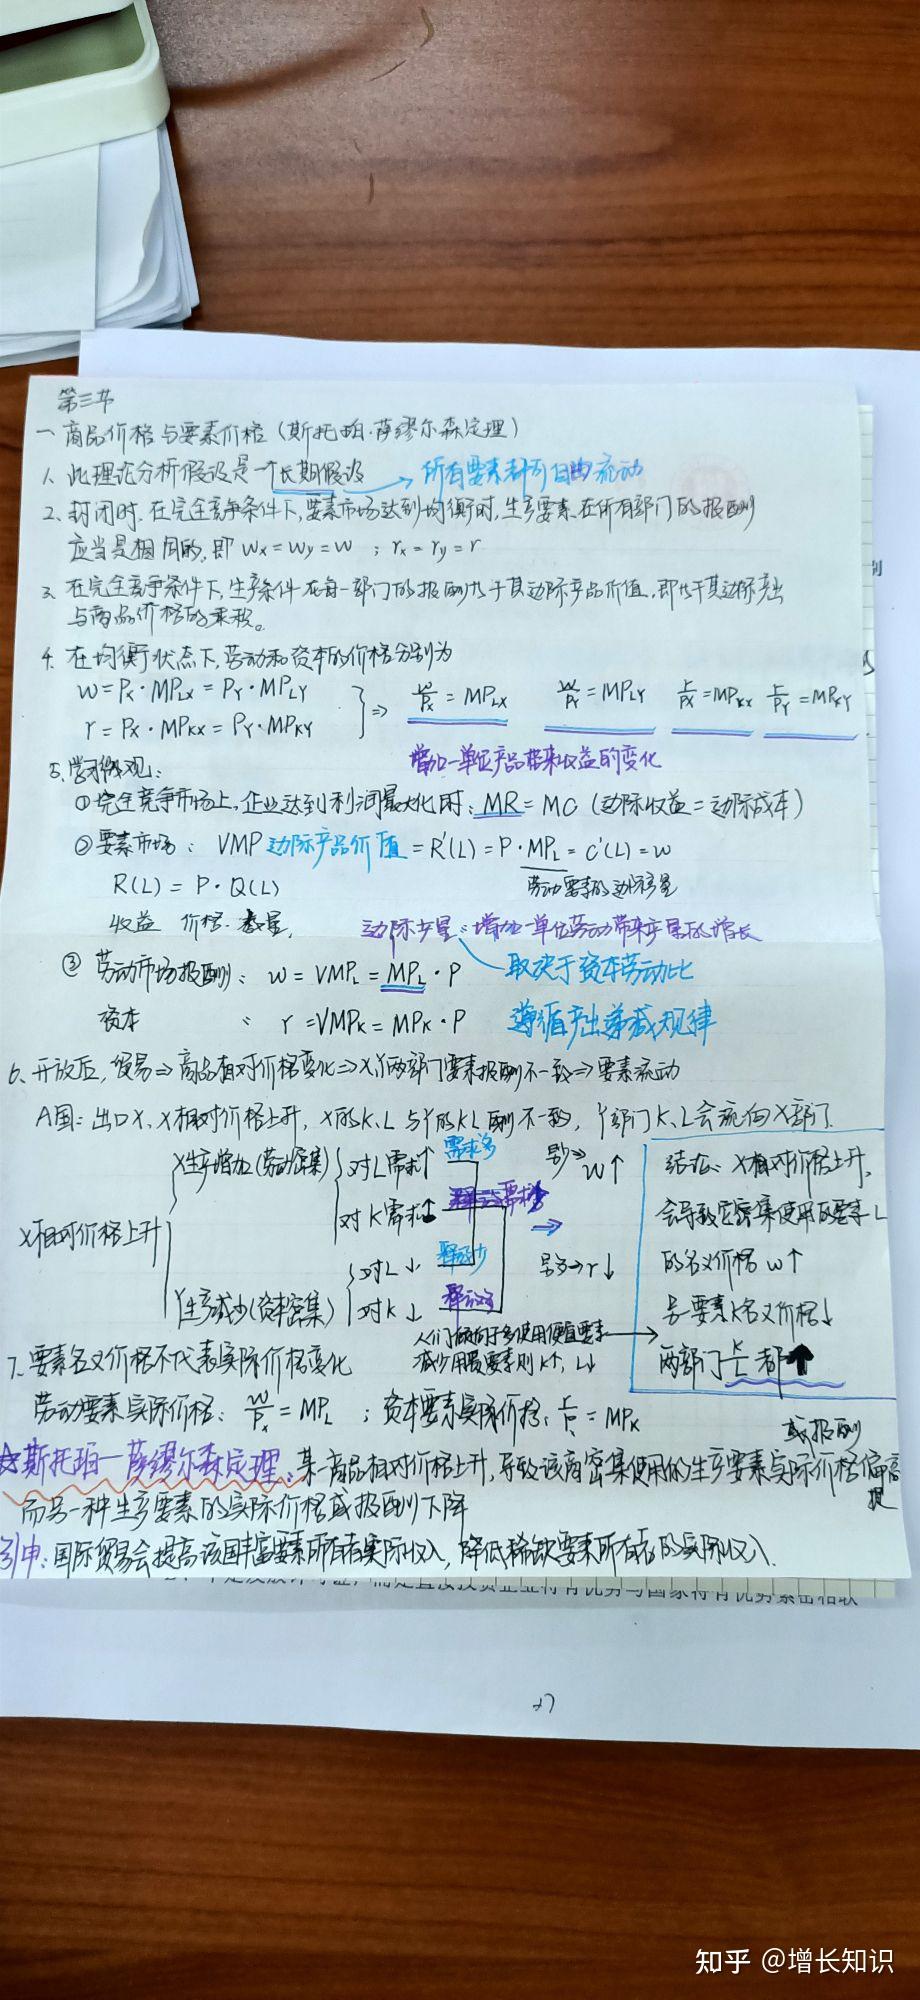 第三节
一、商品价格与要素价格（斯托珀·萨缪尔森定理）
1、此理论分析假设是一个长期假设 → 所有要素都可自由流动
2、封闭时，在完全竞争条件下，要素市场达到均衡时，生产要素在所有部门的报酬
应当是相同的，即 wx=wy=w ；rx=ry=r
3、在完全竞争条件下，生产条件在每一部门的报酬等于其边际产品价值，即等于其边际产出
与商品价格的乘积。
4、在均衡状态下，劳动和资本的价格分别为
w=Px·MPLX=PY·MPLY
r=Px·MPKX=PY·MPKY
⇒ w/Px=MPLX w/PY=MPLY r/Px=MPKX r/PY=MPKY
增加一单位产品带来收益的变化
5、学习微观：
①完全竞争市场上，企业达到利润最大化时：MR=MC（边际收益=边际成本）
②要素市场：VMP边际产品价值=R'(L)=P·MPL=C'(L)=w
劳动要素的边际产量
R(L)=P·Q(L)
收益 价格·数量，
边际产量：增加一单位劳动带来产量的增长
③劳动市场报酬：w=VMPL=MPL·P 取决于资本劳动比
资本 〃 r=VMPK=MPK·P 遵循产出递减规律
6、开放后，贸易⇒商品相对价格变化⇒X,Y两部门要素报酬不一致⇒要素流动
A国：出口X，X相对价格上升，X的K、L与Y的KL酬不一致，Y部门K、L会流向X部门
X相对价格上升
X生产增加（劳动密集）
对L需求↑ 需求多
对K需求↑
Y生产减少（资本密集）
对L↓ 释放少
对K↓ 释放多
w↑
r↓
人们倾向于多使用便宜要素
减少用贵要素则K↑，L↓
结论：X相对价格上升，
会导致它密集使用的要素L
的名义价格w↑
另一要素K名义价格↓
两部门K/L都↑
7、要素名义价格不代表实际价格变化
劳动要素实际价格：w/P=MPL ；资本要素实际价格：r/P=MPK
☆斯托珀—萨缪尔森定理：某一商品相对价格上升，导致该商密集使用的生产要素实际价格或报酬提高
而另一种生产要素的实际价格或报酬下降
引申：国际贸易会提高该国丰富要素所有者实际收入，降低稀缺要素所有者的实际收入。
27
知乎 @增长知识